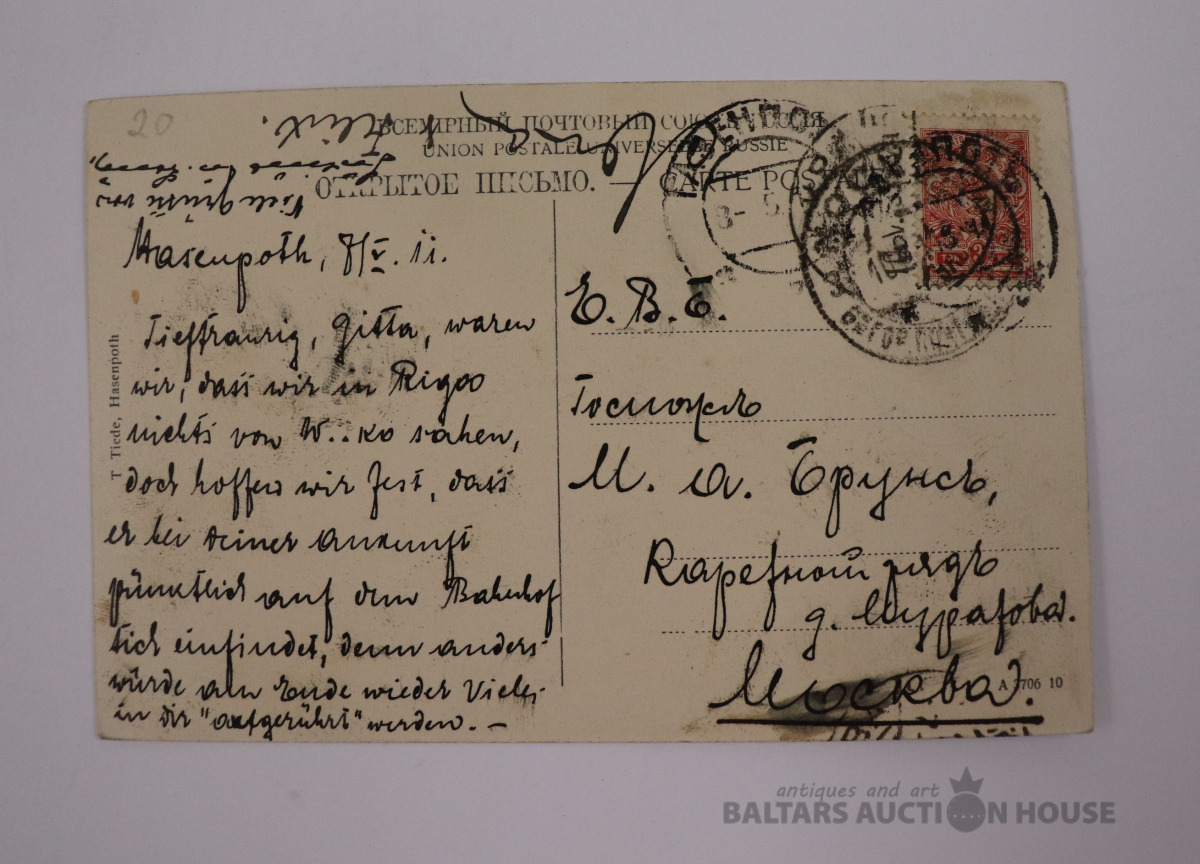 20
ВСЕМІРНЫЙ ПОЧТОВЫЙ СОЮЗ. РОССІЯ
UNION POSTALE UNIVERSELLE RUSSIE
ОТКРЫТОЕ ПИСЬМО. — CARTE POSTALE
Viele Grüße von
Hasenpoth, 7/V. 11.
Tieftraurig, Gitta, waren
wir, dass wir in Riga
nichts von W..ko sahen,
doch hoffen wir fest, dass
er bei deiner Ankunft
pünktlich auf dem Bahnhof
sich einfindet, denn anders
würde am Ende wieder Vieles
in dir "aufgerührt" werden. –
T Tiede, Hasenpoth
Е. В. Б.
Госпожѣ
М. А. Брунсъ,
Каретный рядъ
д. Муратова.
Москва.
А 3706 10
antiques and art
BALTARS AUCTION HOUSE